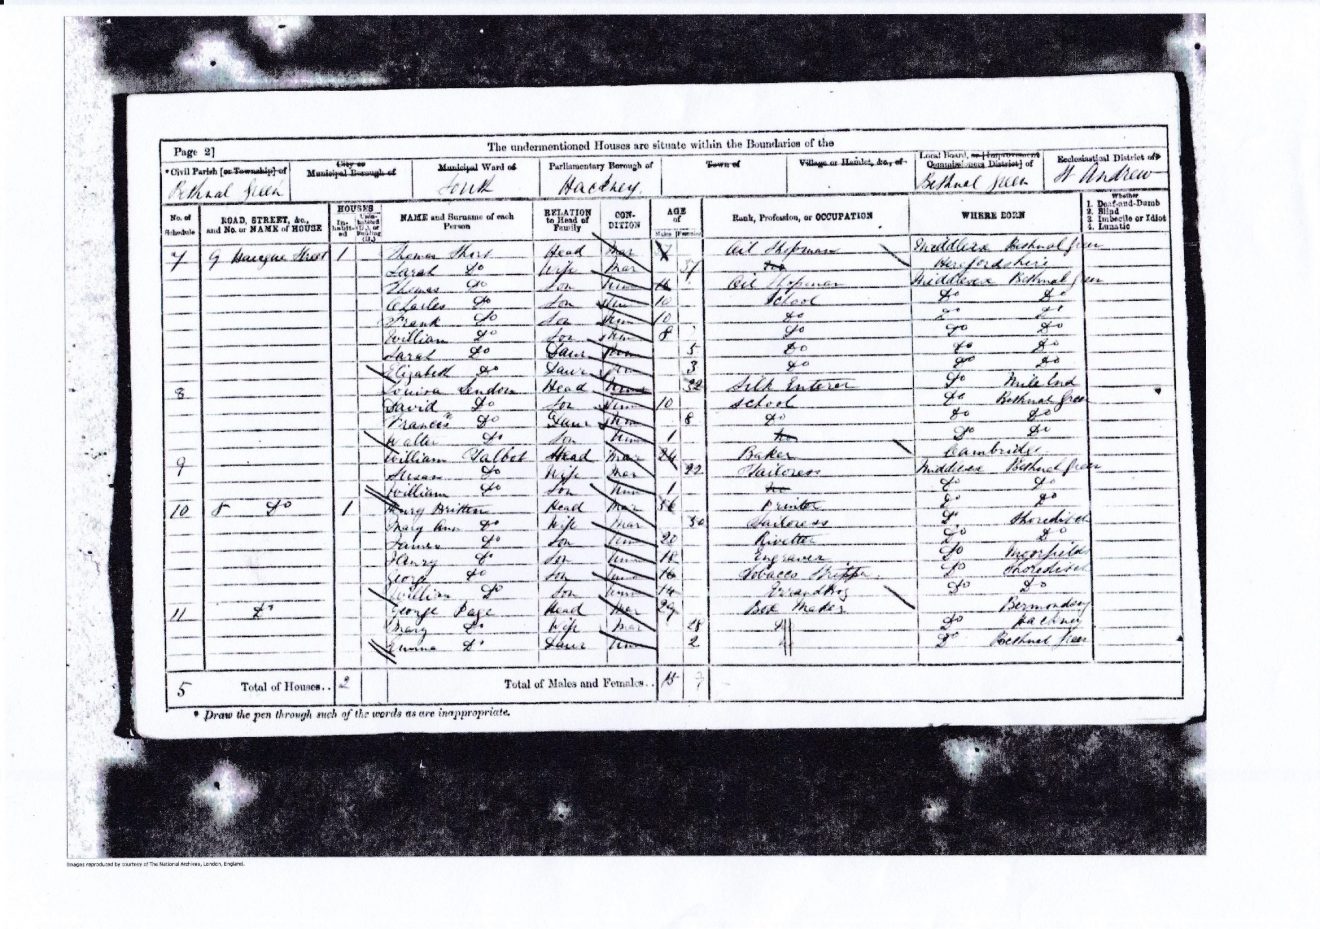 Page 2] The undermentioned Houses are situate within the Boundaries of the
* Civil Parish [or Township] of City or Municipal Borough of Municipal Ward of Parliamentary Borough of Town of Village or Hamlet, &c., of Local Board, or [Improvement Commissioners District] of Ecclesiastical District of
Bethnal Green South Hackney Bethnal Green St Andrew
No. of Schedule ROAD, STREET, &c., and No. or NAME of HOUSE HOUSES Inhabited NAME and Surname of each Person RELATION to Head of Family CONDITION AGE of Males Females Rank, Profession, or OCCUPATION WHERE BORN Whether 1. Deaf-and-Dumb 2. Blind 3. Imbecile or Idiot 4. Lunatic
7 9 Street 1 Thomas Head Mar Oil Shopman Middlesex Bethnal Green
Sarah Do Wife Mar Herefordshire
Thomas Do Son Unm Oil Shopman Middlesex Bethnal Green
Charles Do Son Unm 10 School Do Do
Frank Do Son Unm 10 Do Do Do
William Do Son Unm 8 Do Do Do
Sarah Do Daur Unm 5 Do Do Do
Elizabeth Do Daur Unm 3 Do Do Do
8 Louisa Lendon Head 32 Silk Do Mile End
David Do Son Unm 10 School Do Bethnal Green
Frances Do Daur Unm 8 Do Do Do
Walter Do Son Unm 1 Do Do
9 William Talbot Head Mar 24 Baker Cambridge
Susan Do Wife Mar 22 Tailoress Middlesex Bethnal Green
William Do Son Unm 1 Do Do
10 8 Do 1 Henry Britton Head Mar Printer Do Do
Mary Ann Do Wife Mar 50 Tailoress Do Shoreditch
James Do Son Unm 20 Rivetter Do Do
Henry Do Son Unm 18 Engraver Do Moorfields
George Do Son Unm 16 Tobacco Stripper Do Shoreditch
William Do Son Unm 14 Errand Boy Do Do
11 Do George Page Head Mar 29 Box Maker Bermondsey
Mary Do Wife Mar 28 Do Hackney
Emma Do Daur Unm 2 Do Bethnal Green
5 Total of Houses.. 2 Total of Males and Females.. 15 7
* Draw the pen through such of the words as are inappropriate.
Images reproduced by courtesy of The National Archives, London, England.